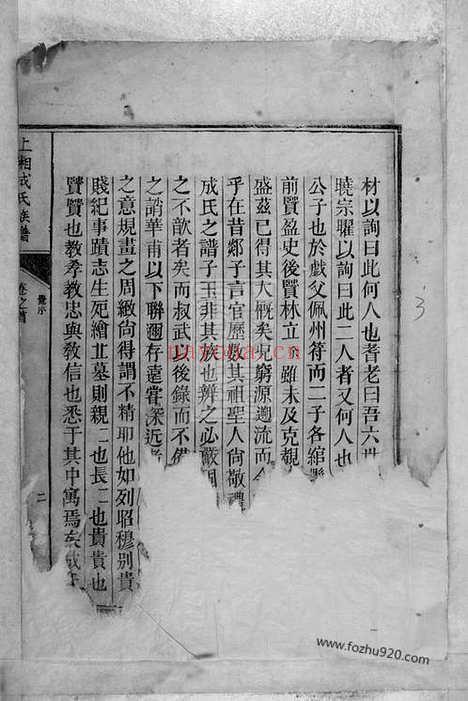 材以詢曰此何人也耆老曰吾六世
曉宗曜以詢曰此二人者又何人也
公子也於戲父佩州符而二子各綰縣
前賢盈史後賢林立雖未及克覩
盛茲已得其大概矣况窮源遡流而
乎在昔郯子言官歷數其祖聖人尚敬禮
成氏之譜子玉非其族也辨之必嚴
之不歆者矣而叔武以後錄而不備
之誚華甫以下聯邇存遠賞深近
之意規畫之周緻尚得謂不精耶他如列昭穆别貴
賤紀事蹟志生死繪丘墓則親二也長二也貴貴也
賢賢也教孝教忠與教信也悉于其中寓焉矣
上湘成氏族譜
卷之首
弁示
二
3
nayona.cn
www.fozhu920.com